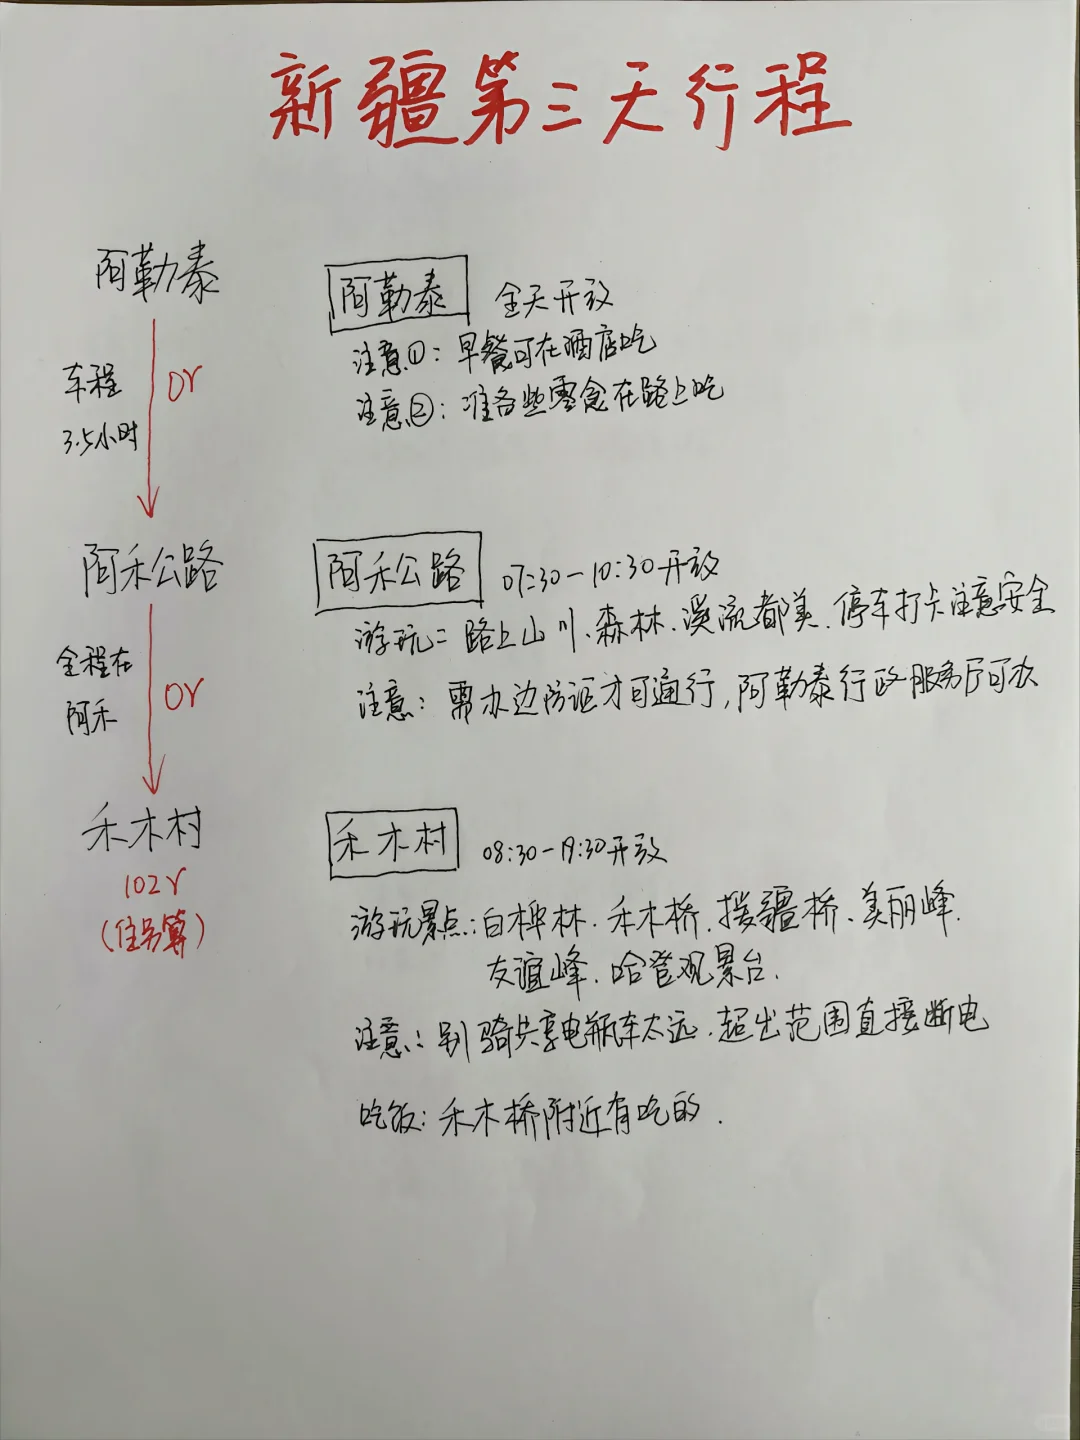 新疆第三天行程
阿勒泰
车程
3.5小时
0r
阿禾公路
全程在
阿禾
0r
禾木村
102r
(住另算)
阿勒泰 全天开放
注意①:早餐可在酒店吃
注意②:准备些零食在路上吃
阿禾公路 07:30-10:30开放
游玩:路上山川、森林、溪流都美、停车打卡注意安全
注意:需办边防证才可通行,阿勒泰行政服务厅可办
禾木村 08:30-19:30开放
游玩景点:白桦林、禾木桥、援疆桥、美丽峰、
友谊峰、哈登观景台.
注意:别骑共享电瓶车太远、超出范围直接断电
吃饭:禾木桥附近有吃的.